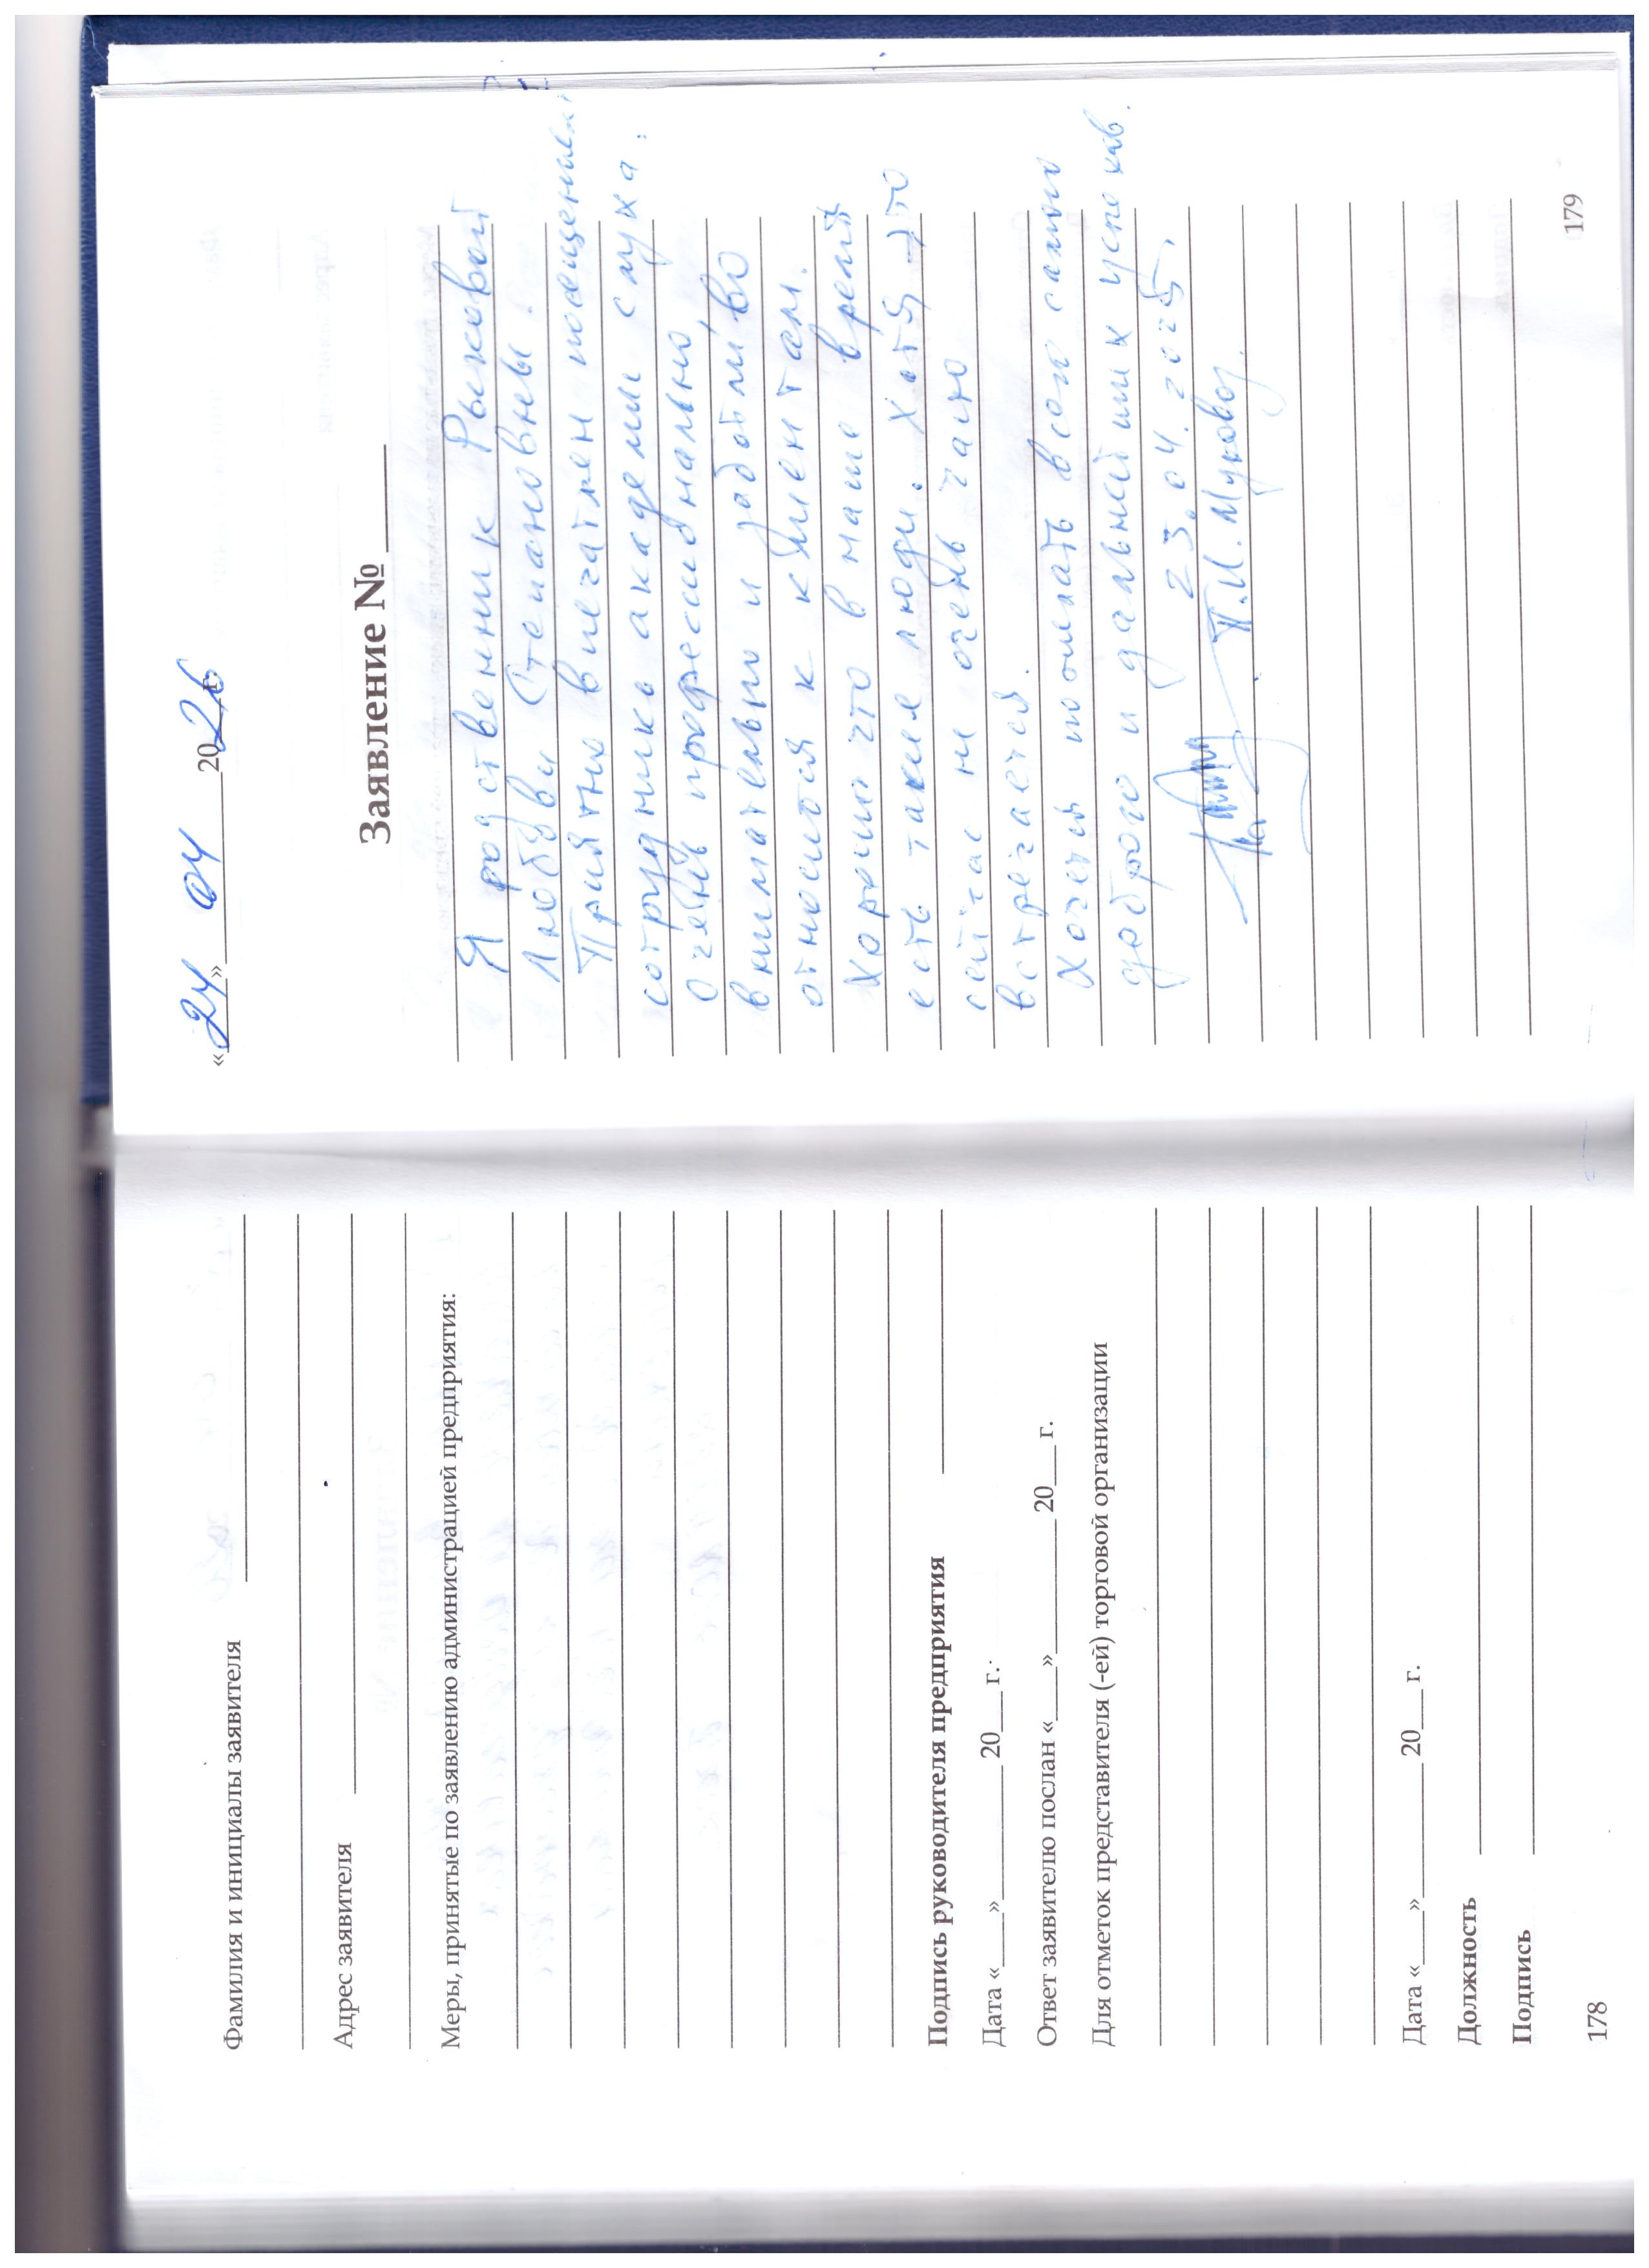 Фамилия и инициалы заявителя
Адрес заявителя
Меры, принятые по заявлению администрацией предприятия:
Подпись руководителя предприятия
Дата «___»________ 20___ г.
Ответ заявителю послан «___»________ 20___ г.
Для отметок представителя (-ей) торговой организации
Дата «___»________ 20___ г.
Должность
Подпись
178
«24» 04 2026 г.
Заявление № ____
Я родственник Рыковой
Любови Степановны.
Приятно впечатлен посещением
сотрудника академии слуха.
Очень профессионально,
внимательно и заботливо
относится к клиентам.
Хорошо что в наше время
есть такие люди. Хотя это
сейчас не очень часто
встречается.
Хочется пожелать всего самого
доброго и дальнейших успехов.
23.04.2025.
П.И.
179